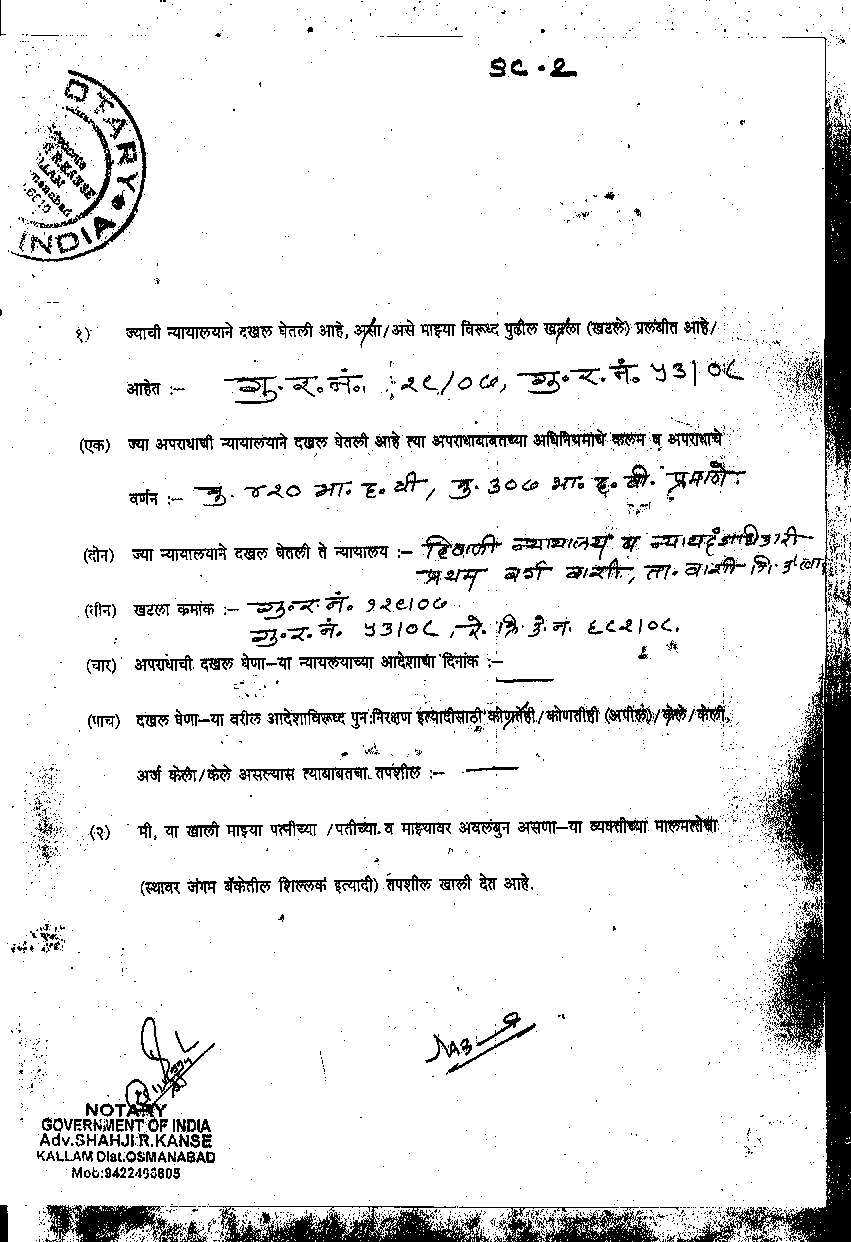 SC-2
NOTARY
INDIA
१) ज्याची न्यायालयाने दखल घेतली आहे, असा/असे माझ्या विरूध्द पुढील खटला (खटले) प्रलंबीत आहे/
आहेत :- गु.र.नं. १२९/०७, गु.र.नं. ५३/०८
(एक) ज्या अपराधाची न्यायालयाने दखल घेतली आहे त्या अपराधाबाबतच्या अधिनियमाचे कलम व अपराधाचे
वर्णन :- कु. ४२० भा.द.वी, कु. ३०७ भा.द.वी. प्रमाणे
(दोन) ज्या न्यायालयाने दखल घेतली ते न्यायालय :- दिवाणी न्यायालय व न्यायदंडाधिकारी
प्रथम वर्ग वाशी, ता. वाशी जि.
(तीन) खटला क्रमांक :- गु.र.नं. १२९/०७
गु.र.नं. ५३/०८, रे. क्रि. के. नं. ६८२/०८.
(चार) अपराधाची दखल घेणा-या न्यायलयाच्या आदेशाचा दिनांक :-
(पाच) दखल घेणा-या वरील आदेशाविरूध्द पुनःनिरक्षण इत्यादीसाठी कोणतेही/कोणतीही (अपील)/केले/केली,
अर्ज केला/केले असल्यास त्याबाबतचा तपशील :-
(२) मी, या खाली माझ्या पत्नीच्या /पतीच्या व माझ्यावर अवलंबुन असणा-या व्यक्तीच्या मालमत्तेचा
(स्थावर जंगम बँकेतील शिल्लक इत्यादी) तपशील खाली देत आहे.
NOTARY
GOVERNMENT OF INDIA
Adv.SHAHJI R.KANSE
KALLAM Dist.OSMANABAD